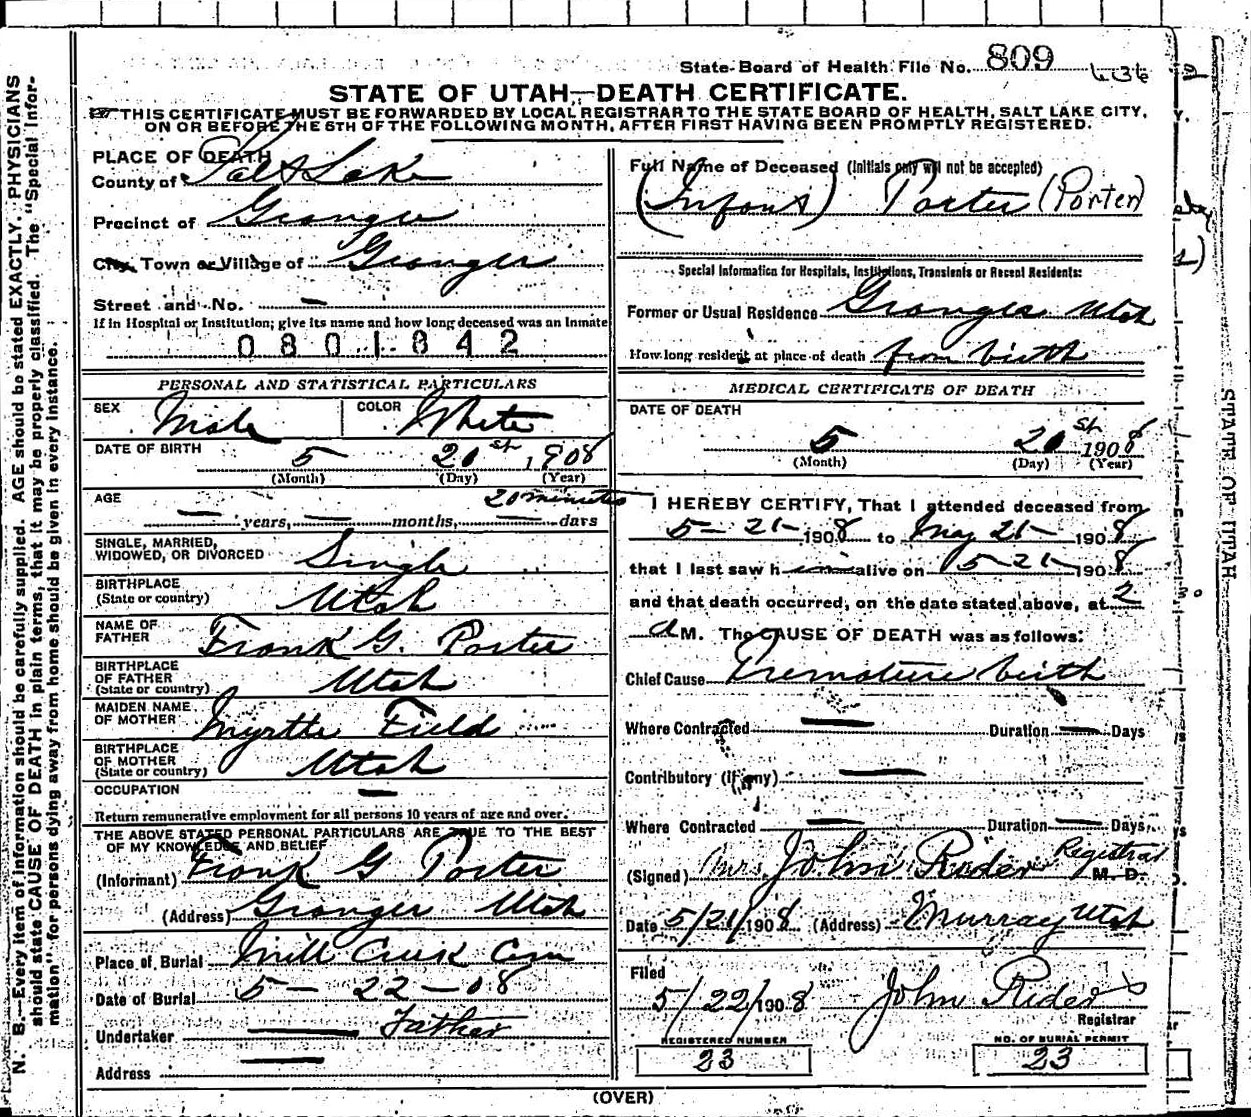 State Board of Health File No. 809 436
STATE OF UTAH—DEATH CERTIFICATE.
THIS CERTIFICATE MUST BE FORWARDED BY LOCAL REGISTRAR TO THE STATE BOARD OF HEALTH, SALT LAKE CITY,
ON OR BEFORE THE 5TH OF THE FOLLOWING MONTH, AFTER FIRST HAVING BEEN PROMPTLY REGISTERED.
PLACE OF DEATH
County of Salt Lake
Precinct of Granger
City, Town or Village of Granger
Street and No. —
If in Hospital or Institution; give its name and how long deceased was an Inmate
0801842
PERSONAL AND STATISTICAL PARTICULARS
SEX Male COLOR White
DATE OF BIRTH 5 21st, 1908
(Month) (Day) (Year)
AGE 20 minutes
— years, — months, — days
SINGLE, MARRIED,
WIDOWED, OR DIVORCED Single
BIRTHPLACE
(State or country) Utah
NAME OF
FATHER Frank G. Porter
BIRTHPLACE
OF FATHER
(State or country) Utah
MAIDEN NAME
OF MOTHER Myrtle Field
BIRTHPLACE
OF MOTHER
(State or country) Utah
OCCUPATION —
Return remunerative employment for all persons 10 years of age and over.
THE ABOVE STATED PERSONAL PARTICULARS ARE TRUE TO THE BEST
OF MY KNOWLEDGE AND BELIEF
(Informant) Frank G Porter
(Address) Granger Utah
Place of Burial Mill Creek Cem
Date of Burial 5 — 22 — 08
Undertaker — Father
Address —
Full Name of Deceased (Initials only will not be accepted)
(Infant) Porter (Porter)
Special Information for Hospitals, Institutions, Transients or Recent Residents:
Former or Usual Residence Granger Utah
How long resident at place of death from birth
MEDICAL CERTIFICATE OF DEATH
DATE OF DEATH
5 21st 1908
(Month) (Day) (Year)
I HEREBY CERTIFY, That I attended deceased from
5 - 21 - 1908 to May 21 - 1908
that I last saw him alive on 5-21-1908
and that death occurred, on the date stated above, at 2
a M. The CAUSE OF DEATH was as follows:
Chief Cause Premature birth
Where Contracted — Duration — Days
Contributory (If any) —
Where Contracted — Duration — Days
(Signed) Mrs. John Rider Registrar M. D.
Date 5/21/1908 (Address) Murray Utah
Filed
5/22/1908 John Rider
Registrar
REGISTERED NUMBER
23
NO. OF BURIAL PERMIT
23
(OVER)
N. B.—Every item of information should be carefully supplied. AGE should be stated EXACTLY. PHYSICIANS
should state CAUSE OF DEATH in plain terms, that it may be properly classified. The "Special Infor-
mation" for persons dying away from home should be given in every instance.
STATE OF UTAH